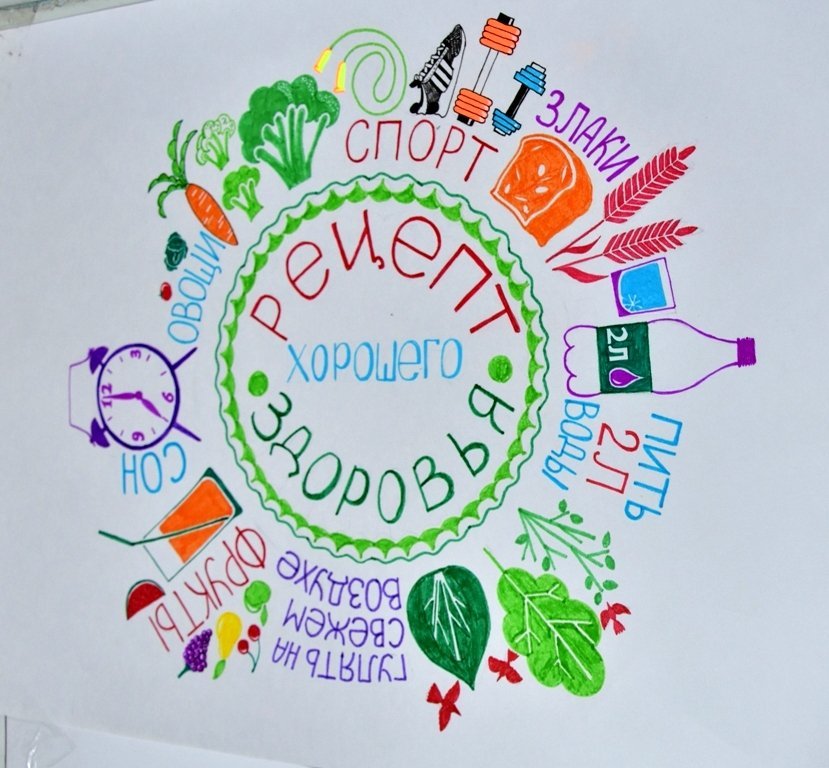 РЕЦЕПТ
ХОРОШЕГО
ЗДОРОВЬЯ
СПОРТ
ЗЛАКИ
2Л
ПИТЬ
2Л
ВОДЫ
ГУЛЯТЬ НА
СВЕЖЕМ
ВОЗДУХЕ
ФРУКТЫ
СОН
12
3
6
9
ОВОЩИ